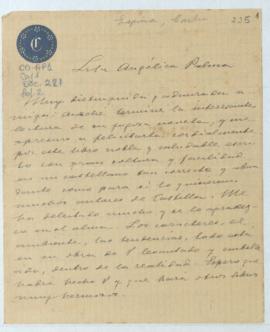 Espina, Concha
235
CO-AP1
Doc. 287
Fol. 2
Srta Angélica Palma
Muy distinguida y admirada a
miga: Anoche terminé la interesante
lectura de su nueva novela, y me
apresuro a felicitarla cordialmente
por este libro noble y saludable escri
to con gran cultura y facilidad
en un castellano tan correcto y abun
dante como para sí lo quisieran
muchos autores de Castilla. Me
ha deleitado mucho y se lo agradez
co en el alma. Los caracteres, el
ambiente, las tendencias, todo está
en su obra de V. y embelle
cido, dentro de la realidad. Espero que
habrá hecho V. y que hará otros libros
muy hermosos.